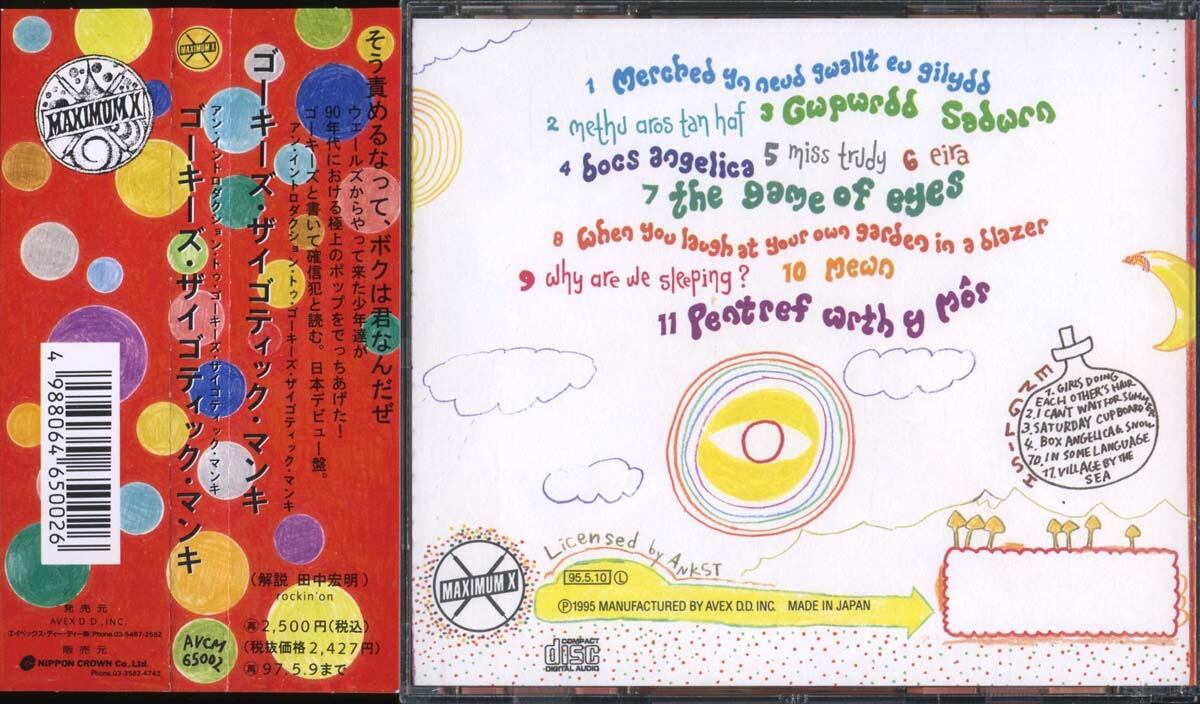 そう責めるなって、ボクは君なんだぜ
ウェールズからやって来た少年達が
90年代における極上のポップをでっちあげた!
ゴーキーズと書いて確信犯と読む。日本デビュー盤。
アン・イントロダクション・トゥ・ゴーキーズ・ザイゴティック・マンキ
ゴーキーズ・ザイゴティック・マンキ
(解説 田中宏明)
rockin'on
再 2,500円(税込)
(税抜価格 2,427円)
再 97.5.9まで
MAXIMUM X
アン・イントロダクション・トゥ・ゴーキーズ・ザイゴティック・マンキ
ゴーキーズ・ザイゴティック・マンキ
AVCM
65002
MAXIMUM X
4 988064 650026
発売元
AVEX D.D., INC.
エイベックス・ディー・ディー㈱ Phone.03-5467-2552
販売元
NIPPON CROWN Co., Ltd.
Phone.03-3582-4743
1 Merched yn neud gwallt eu gilydd
2 methu aros tan haf 3 Gwpwrdd Sadwrn
4 bocs angelica 5 miss trudy 6 eira
7 the game of eyes
8 When you laugh at your own garden in a blazer
9 why are we sleeping? 10 mewn
11 Pentref wrth y môr
ENGLISH
1. GIRLS DOING
EACH OTHER'S HAIR
2. I CAN'T WAIT FOR SUMMER
3. SATURDAY CUPBOARD
4. BOX ANGELICA 6. SNOW
10. IN SOME LANGUAGE
11. VILLAGE BY THE
SEA
MAXIMUM X
Licensed by ANKST
95.5.10 Ⓛ
Ⓟ1995 MANUFACTURED BY AVEX D.D. INC. MADE IN JAPAN
COMPACT
disc
DIGITAL AUDIO